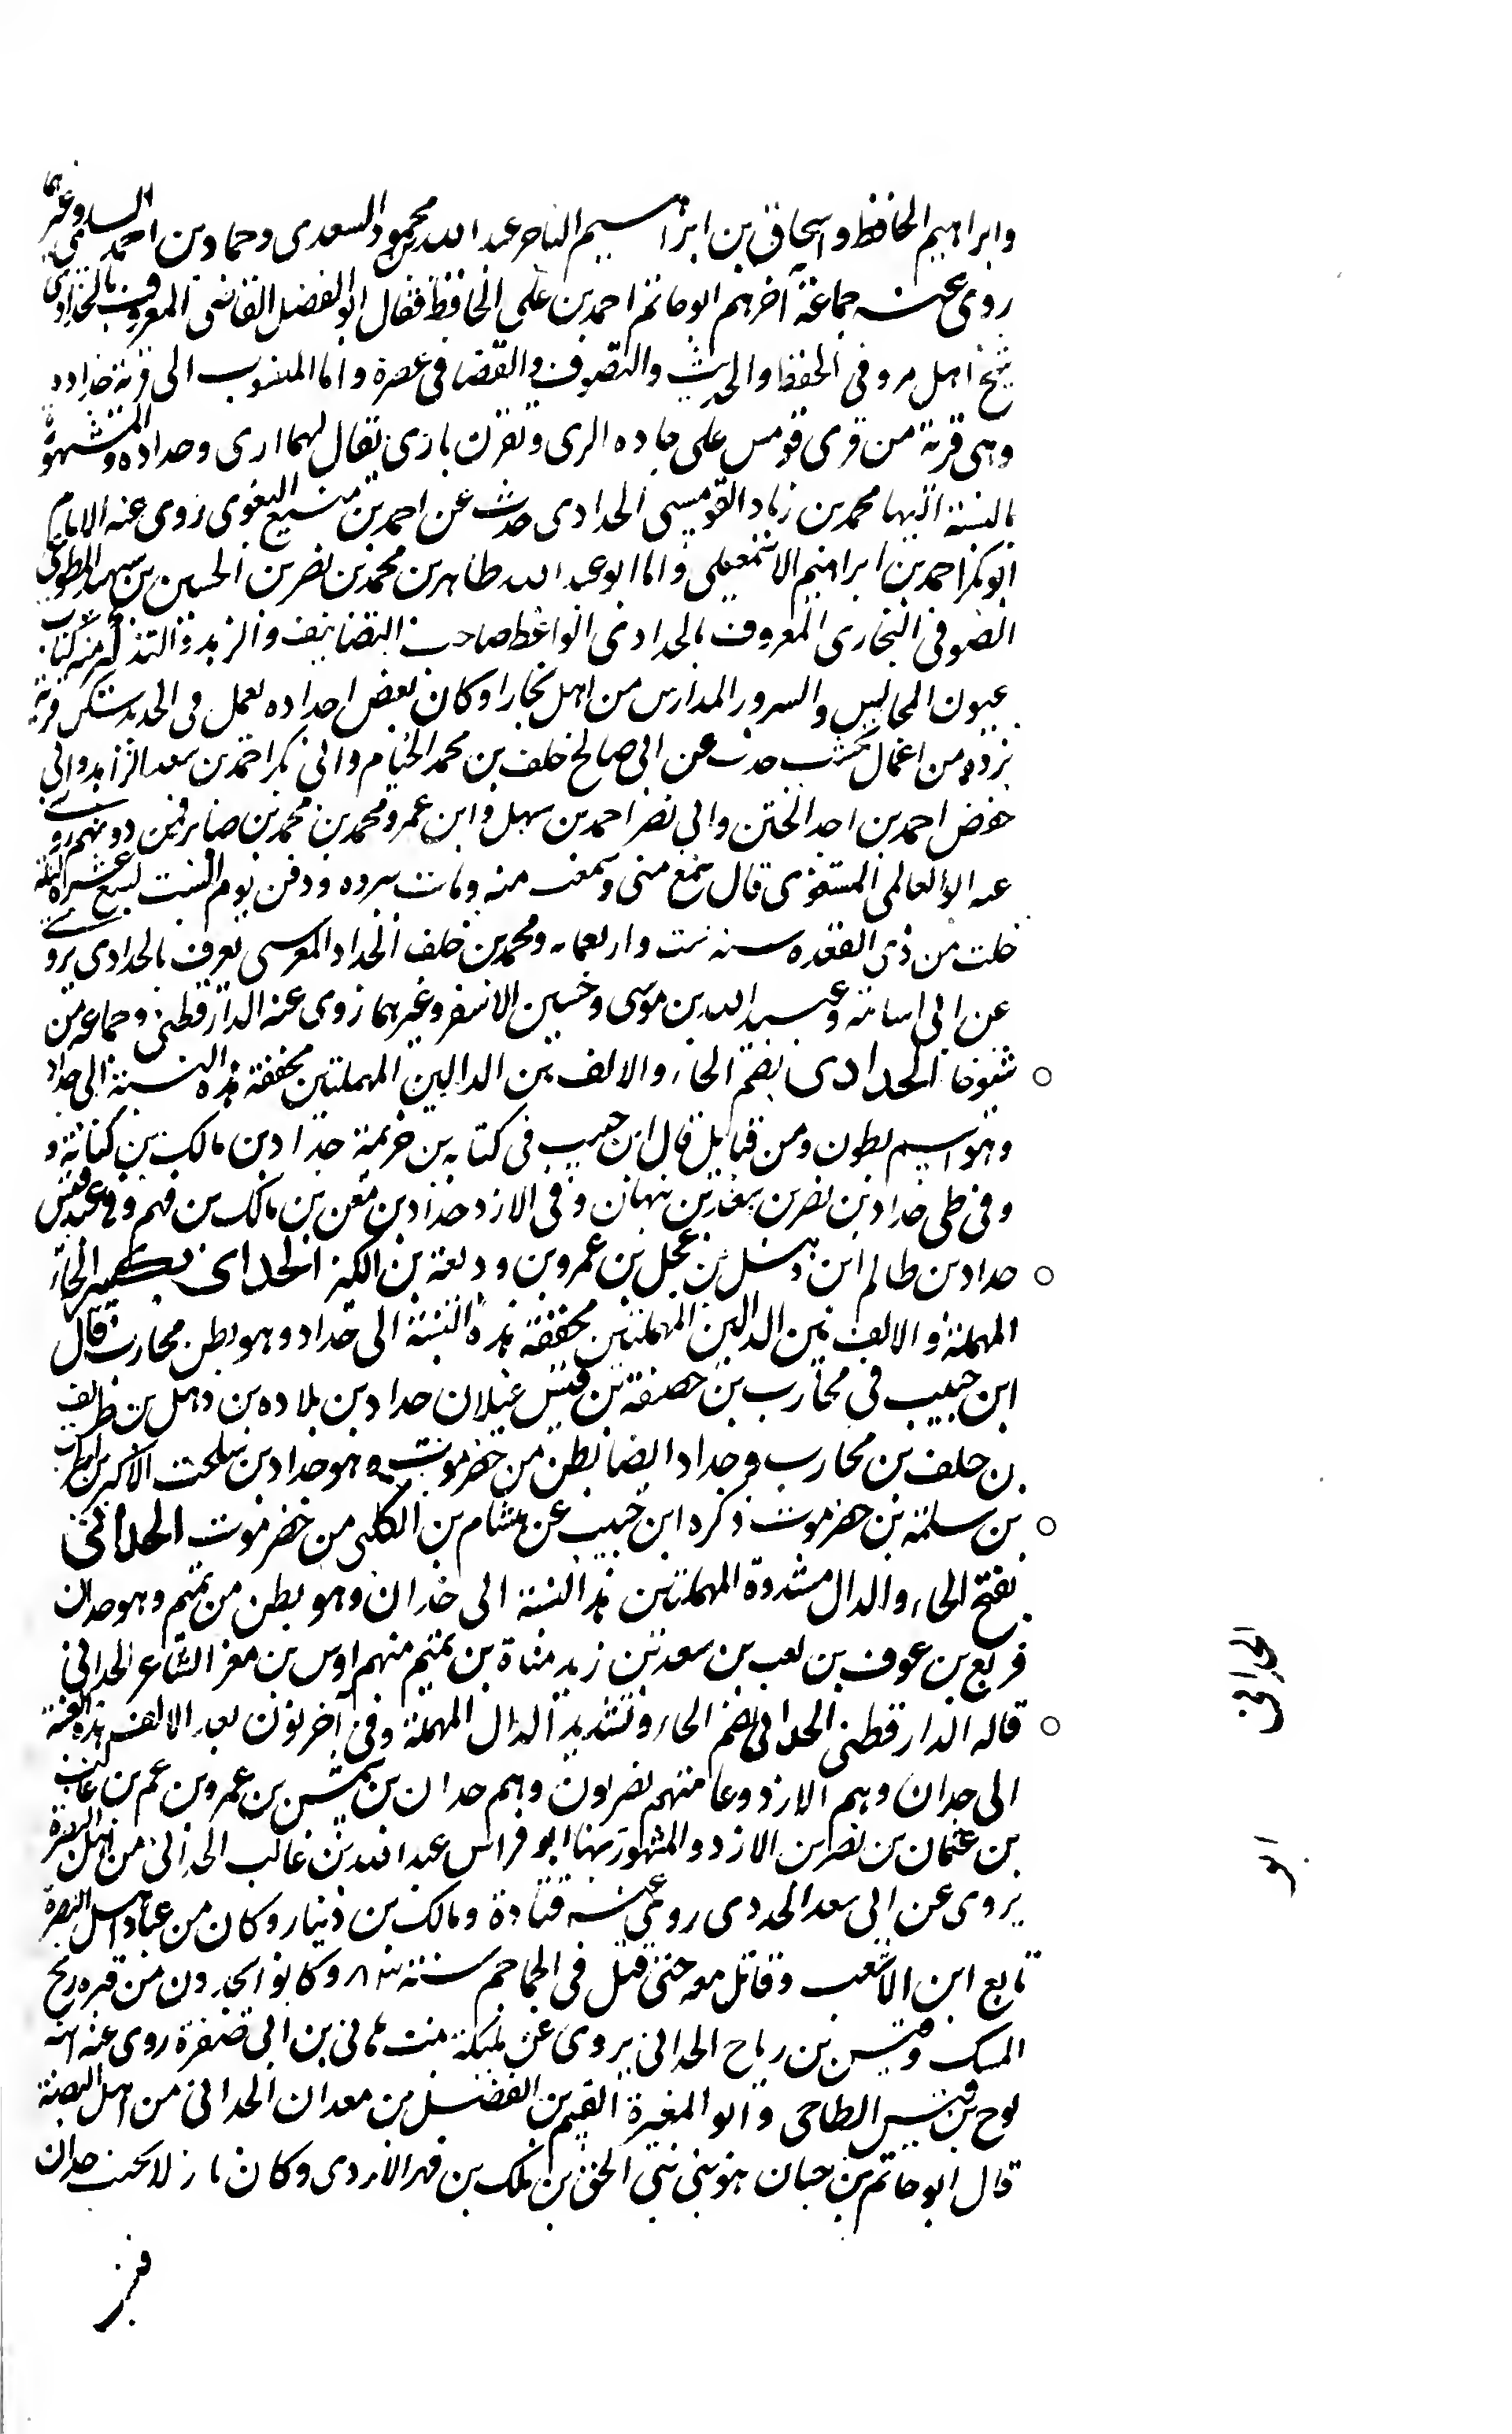 وابراهيم الحافظ واسحاق بن ابراهيم التاجر عبد الله بن محمود السعدى وحماد بن احمد السلمى وغيرهما
روى عنه جماعة آخرهم ابو حاتم احمد بن على الحافظ فقال ابو الفضل القاضى المعروف بالحدادى
شيخ اهل مرو فى الحفظ والحديث والتصوف والقضا فى عصره واما المنسوب الى قرية حداده
وهى قرية من قرى قومس على جاده الرى وتقرن بارى يقال لهما ارى وحداده والمشهور
بالنسبة اليها محمد بن زياد القومسى الحدادى حدث عن احمد بن منيع البغوى روى عنه الامام
ابو بكر احمد بن ابراهيم الاسمعيلى واما ابو عبد الله طاهر بن محمد بن نصر بن الحسين بن سهل المطوعى
الصوفى البخارى المعروف بالحدادى الواعظ صاحب التصانيف والزهد والتذكير منه كتاب
عيون المجالس والسرور المدارس من اهل بخارا وكان بعض اجداده يعمل فى الحديد سكن قرية
بزده من اعمال كسب حدث عن ابى صالح خلف بن محمد الخيام وابى بكر احمد بن سعد الزاهد وابى
حفص احمد بن احمد الختن وابى نصر احمد بن سهل وابن عمرو محمد بن محمد بن صابر فمن دونهم روى
عنه ابو العالمى المستغفرى قال سمع منى وسمعت منه ومات ببزده ودفن يوم السبت لسبع عشرة ليلة
خلت من ذى القعده سنه ست واربعمايه ومحمد بن خلف الحداد المقرسى يعرف بالحدادى يروى
عن ابى اسامة وعبيد الله بن موسى وحسين الاشقر وغيرهما روى عنه الدارقطنى وجماعه من
شيوخنا الحدادى بضم الحاء والالف بين الدالين المهملتين مخففة هذه النسبة الى حداد
وهو اسم بطون ومن قبايل قال ابن حبيب فى كتابه بن خزيمة حداد بن مالك بن كنانة و
وفى طى حداد بن نصر بن سعد بن نبهان وفى الازد حداد بن معن بن مالك بن فهم وفى عبد قيس
حداد بن ظالم ابن ذهل بن عجل بن عمرو بن وديعة بن الكيز الحدادى بكسر الحاء
المهملة والالف بين الدالين المهملتين مخففة هذه النسبة الى حداد وهو بطن محارب قال
ابن حبيب فى محارب بن حصفة بن قيس عيلان حداد بن بلاده بن ذهل بن طريف
بن خلف بن محارب وحداد ايضا بطن من حضرموت وهو حداد بن سلحت الاكبر بن
بن سلمة بن حضرموت ذكره ابن حبيب عن هشام بن الكلبى من حضرموت الحدانى
بفتح الحاء والدال مشددة المهملتين هذه النسبة الى حدان وهو بطن من تميم وهو حدان
قريع بن عوف بن كعب بن سعد بن زيد مناة بن تميم منهم اوس بن مغرا الشاعر الحدانى
قاله الدارقطنى الحدانى بضم الحاء وتشديد الدال المهملة وفى آخر نون بعد الالف هذه النسبة
الى حدان وهم الازد وعامتهم بصريون وهم حدان بن شمس بن عمرو بن غنم بن غالب
بن عثمان بن نصر بن الازد والمشهور منها ابو فراس عبد الله بن غالب الحدانى من اهل البصرة
يروى عن ابى سعد الخدرى روى عنه قتادة ومالك بن دينار وكان من عباد اهل البصرة
تابع ابن الاشعث وقاتل معه حتى قتل فى الجماجم سنة ٨٣ وكانوا يجدون من قبره ريح
المسك وقيس بن رباح الحدانى يروى عن مليكة بنت هانى بن ابى صفرة روى عنه ابنه
نوح بن قيس الطاحى وابو المغيرة القسم بن الفضل بن معدان الحدانى من اهل البصرة
قال ابو حاتم بن حبان هو بنى بنى الحق بن ملك بن فهر الازدى وكان نازلا بحت حدان
الحدانى
ابو